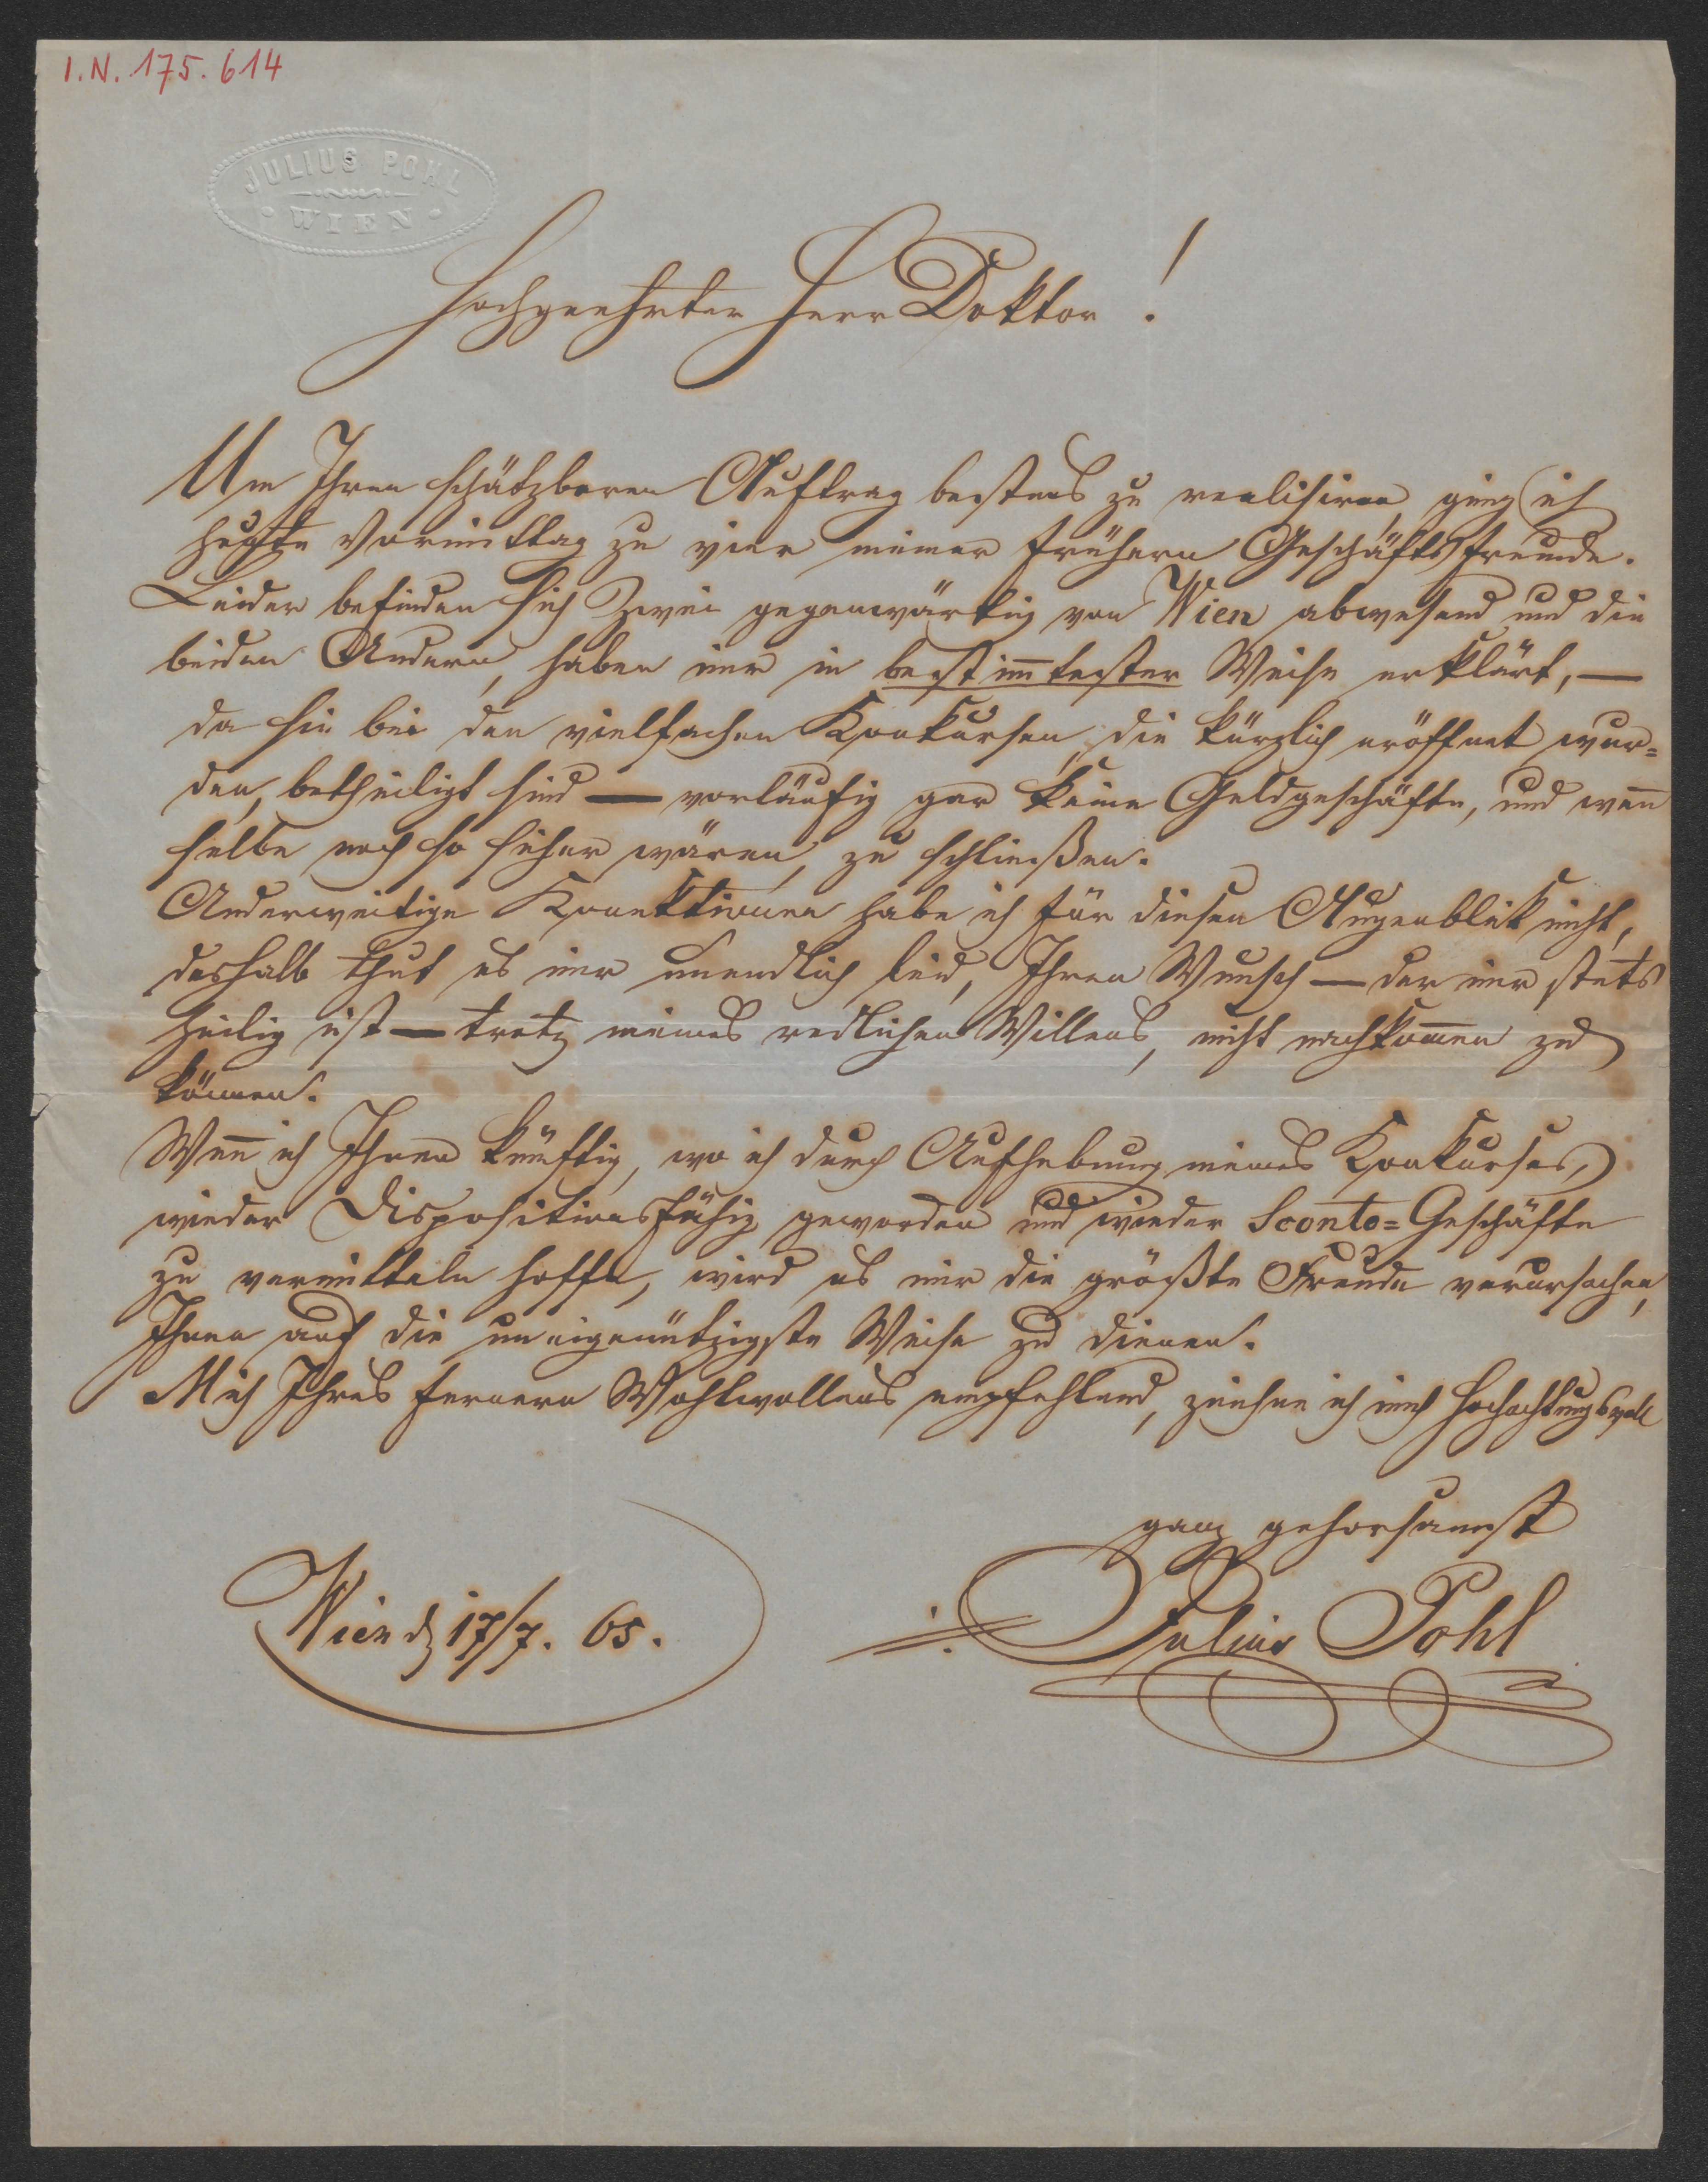 I.N. 175.614
JULIUS POHL
WIEN
Hochgeehrter Herr Doktor!
Um Ihren schätzbaren Auftrag bestens zu realisiren, ging ich
heute Vormittag zu vier meiner frühern Geschäftsfreunde.
Leider befinden sich Zwei gegenwärtig von Wien abwesend und die
beiden Andern, haben mir in bestim̅tester Weise erklärt, —
da sie bei den vielfachen Konkursen, die kürzlich eröffnet wur=
den, betheiligt sind — vorläufig gar keine Geldgeschäfte, und wen̅
selbe noch so sicher wären, zu schließen.
Anderweitige Konnektionen habe ich für diesen Augenblick nicht,
deshalb thut es mir unendlich leid, Ihren Wunsch — der mir stets
heilig ist — trotz meines redlichen Willens, nicht nachkom̅en zu
können.
Wen̅ ich Ihnen künftig, wo ich durch Aufhebung meines Konkurses,
wieder Dispositionsfähig geworden und wieder Sconto=Geschäfte
zu vermitteln hoffe, wird es mir die größte Freude verursachen,
Ihnen auf die uneigennützigste Weise zu dienen.
Mich Ihres fernern Wohlwollens empfehlend, zeichne ich mich hochachtungsvoll
ganz gehorsamst
Wien d 17/7. 65.
Julius Pohl